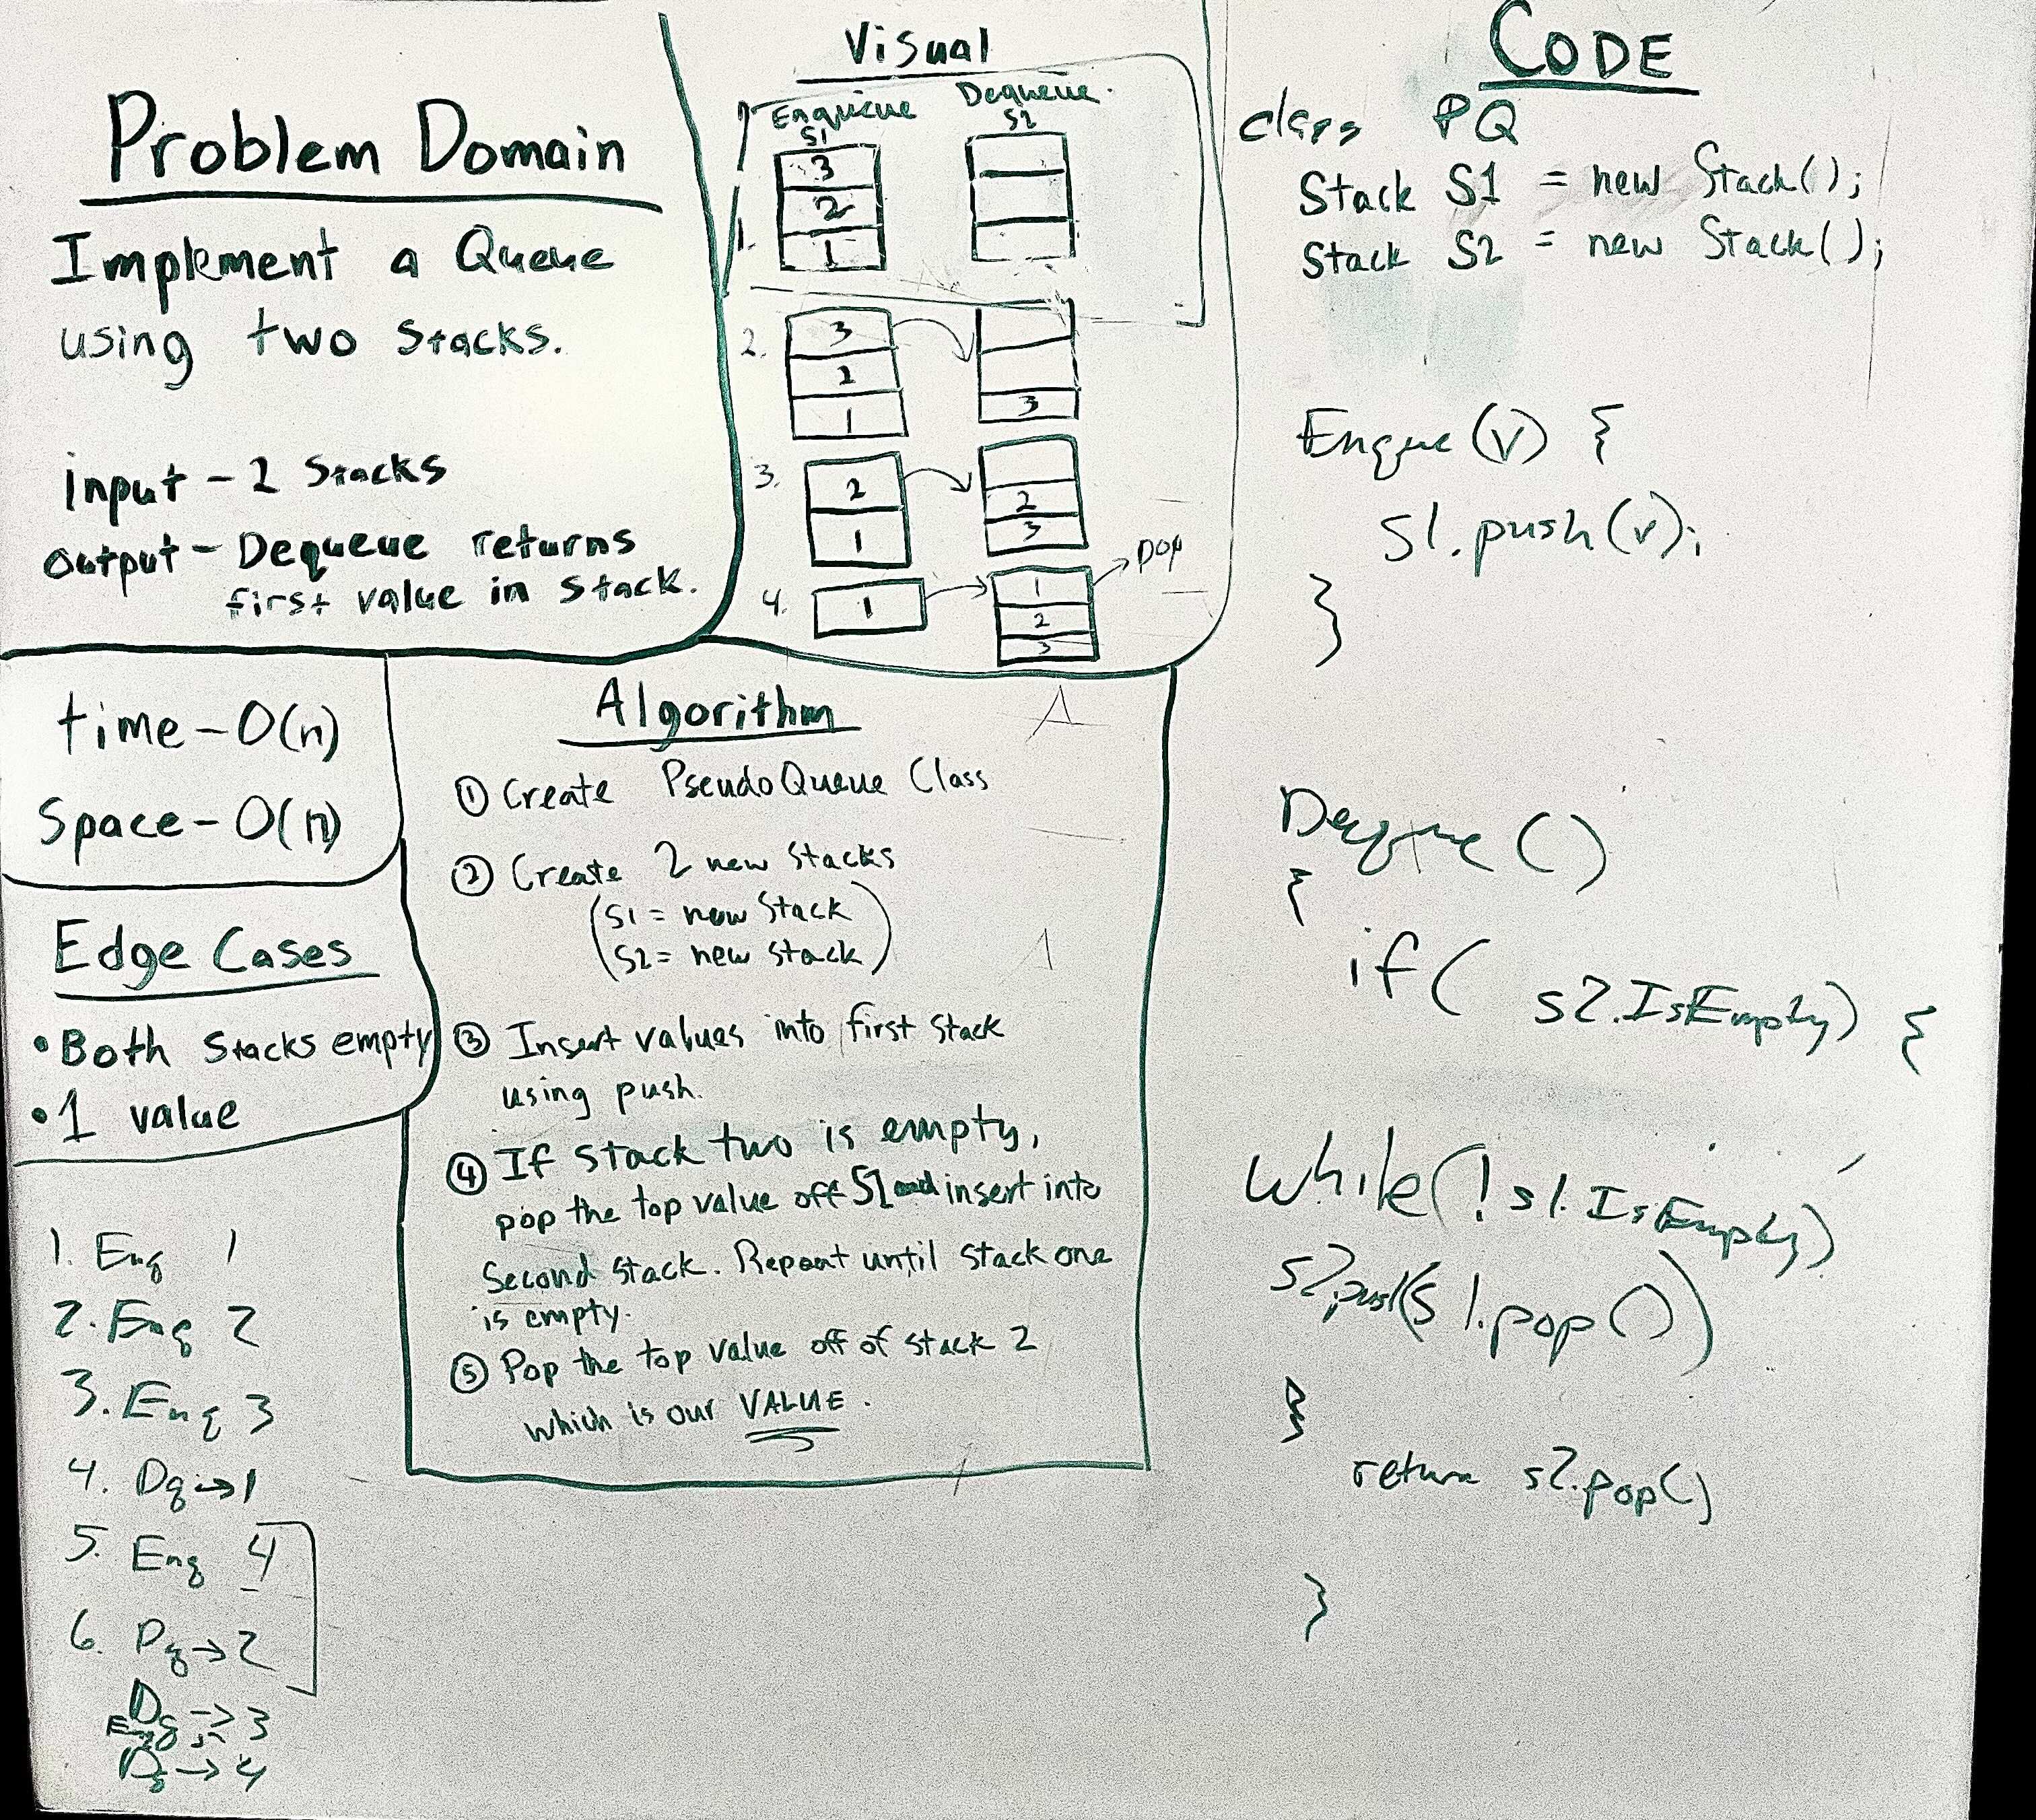 Problem Domain
Implement a Queue
using two Stacks.
input - 2 Stacks
output - Dequeue returns
first value in stack.
Visual
Enqueue Dequeue.
S1 S2
3
2
1. 1
2. 3
2
1 3
3. 2
2
1 3
pop
4. 1 1
2
3
time - O(n)
Space - O(n)
Edge Cases
• Both stacks empty
• 1 value
1. Enq 1
2. Enq 2
3. Enq 3
4. Dq → 1
5. Enq 4
6. Dq → 2
Dq → 3
Dq → 4
Algorithm
① Create PseudoQueue Class
② Create 2 new stacks
(S1 = new Stack
S2 = new stack)
③ Insert values into first stack
using push.
④ If stack two is empty,
pop the top value off S1 and insert into
Second stack. Repeat until stack one
is empty.
⑤ Pop the top value off of stack 2
which is our VALUE.
CODE
class PQ
Stack S1 = new Stack();
Stack S2 = new Stack();
Enque(v) {
s1.push(v);
}
Deque()
{
if( s2.IsEmpty) {
while(!s1.IsEmpty)
s2.push(s1.pop())
}
return s2.pop()
}